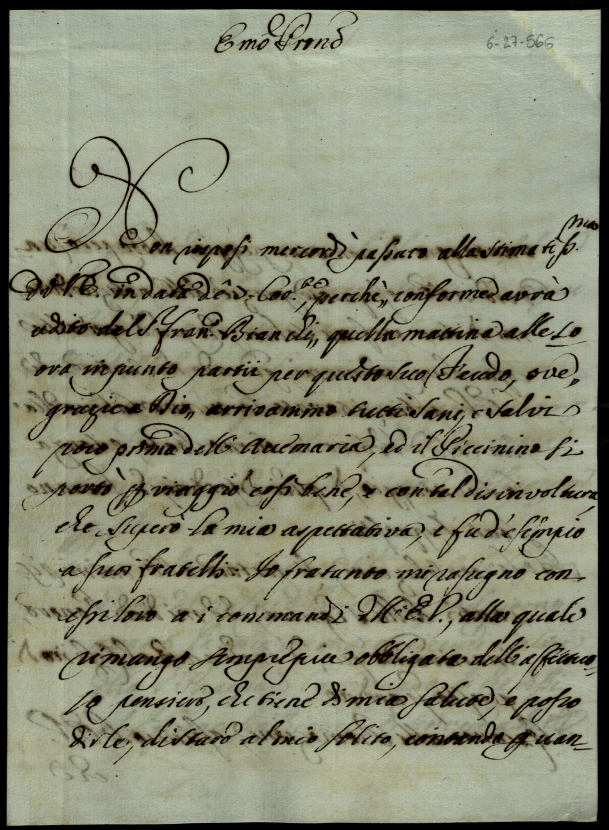 Emo Prone
6-27-866
Non risposi mercordì passato alla stimatissma
di V.E. in data de 3. Corrte, perchè, conforme avrà
udito dal Sr Franco Bianchi, quella mattina alle 10
ora in punto partii per questo suo Feudo, ove,
grazie a Dio, arrivammo tutti sani, e salvi
poco prima dell'Avemaria, ed il Piccinino si
portò pr viaggio così bene, e con tal disinvoltura,
che superò la mia aspettativa, e fu d'esempio
a suoi fratelli. Io fratanto mi rasegno con
essi loro a i commandi di V.E., alla quale
rimango sempre più obbligata dell'affettuo-
so pensiero, che tiene di mia salute, e posso
dirle, di star al mio solito, contando quan-